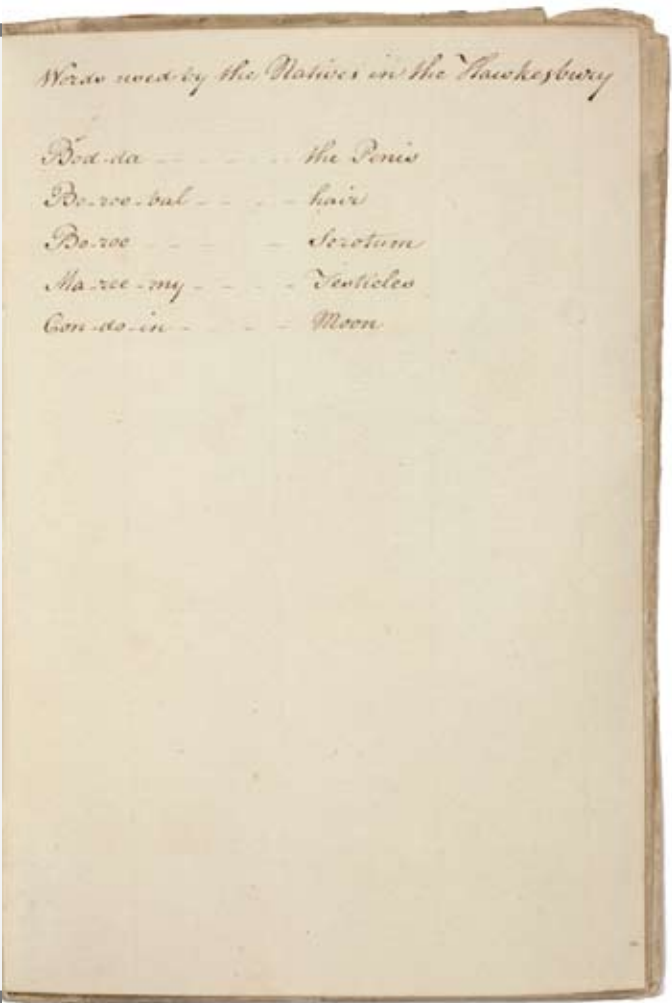 Words used by the Natives in the Hawkesbury
Bod-da - - - - - the Penis
Bo-roo-bal - - - - hair
Bo-roo - - - - Scrotum
Ma-ree-my - - - - Testicles
Con-do-in - - - - Moon